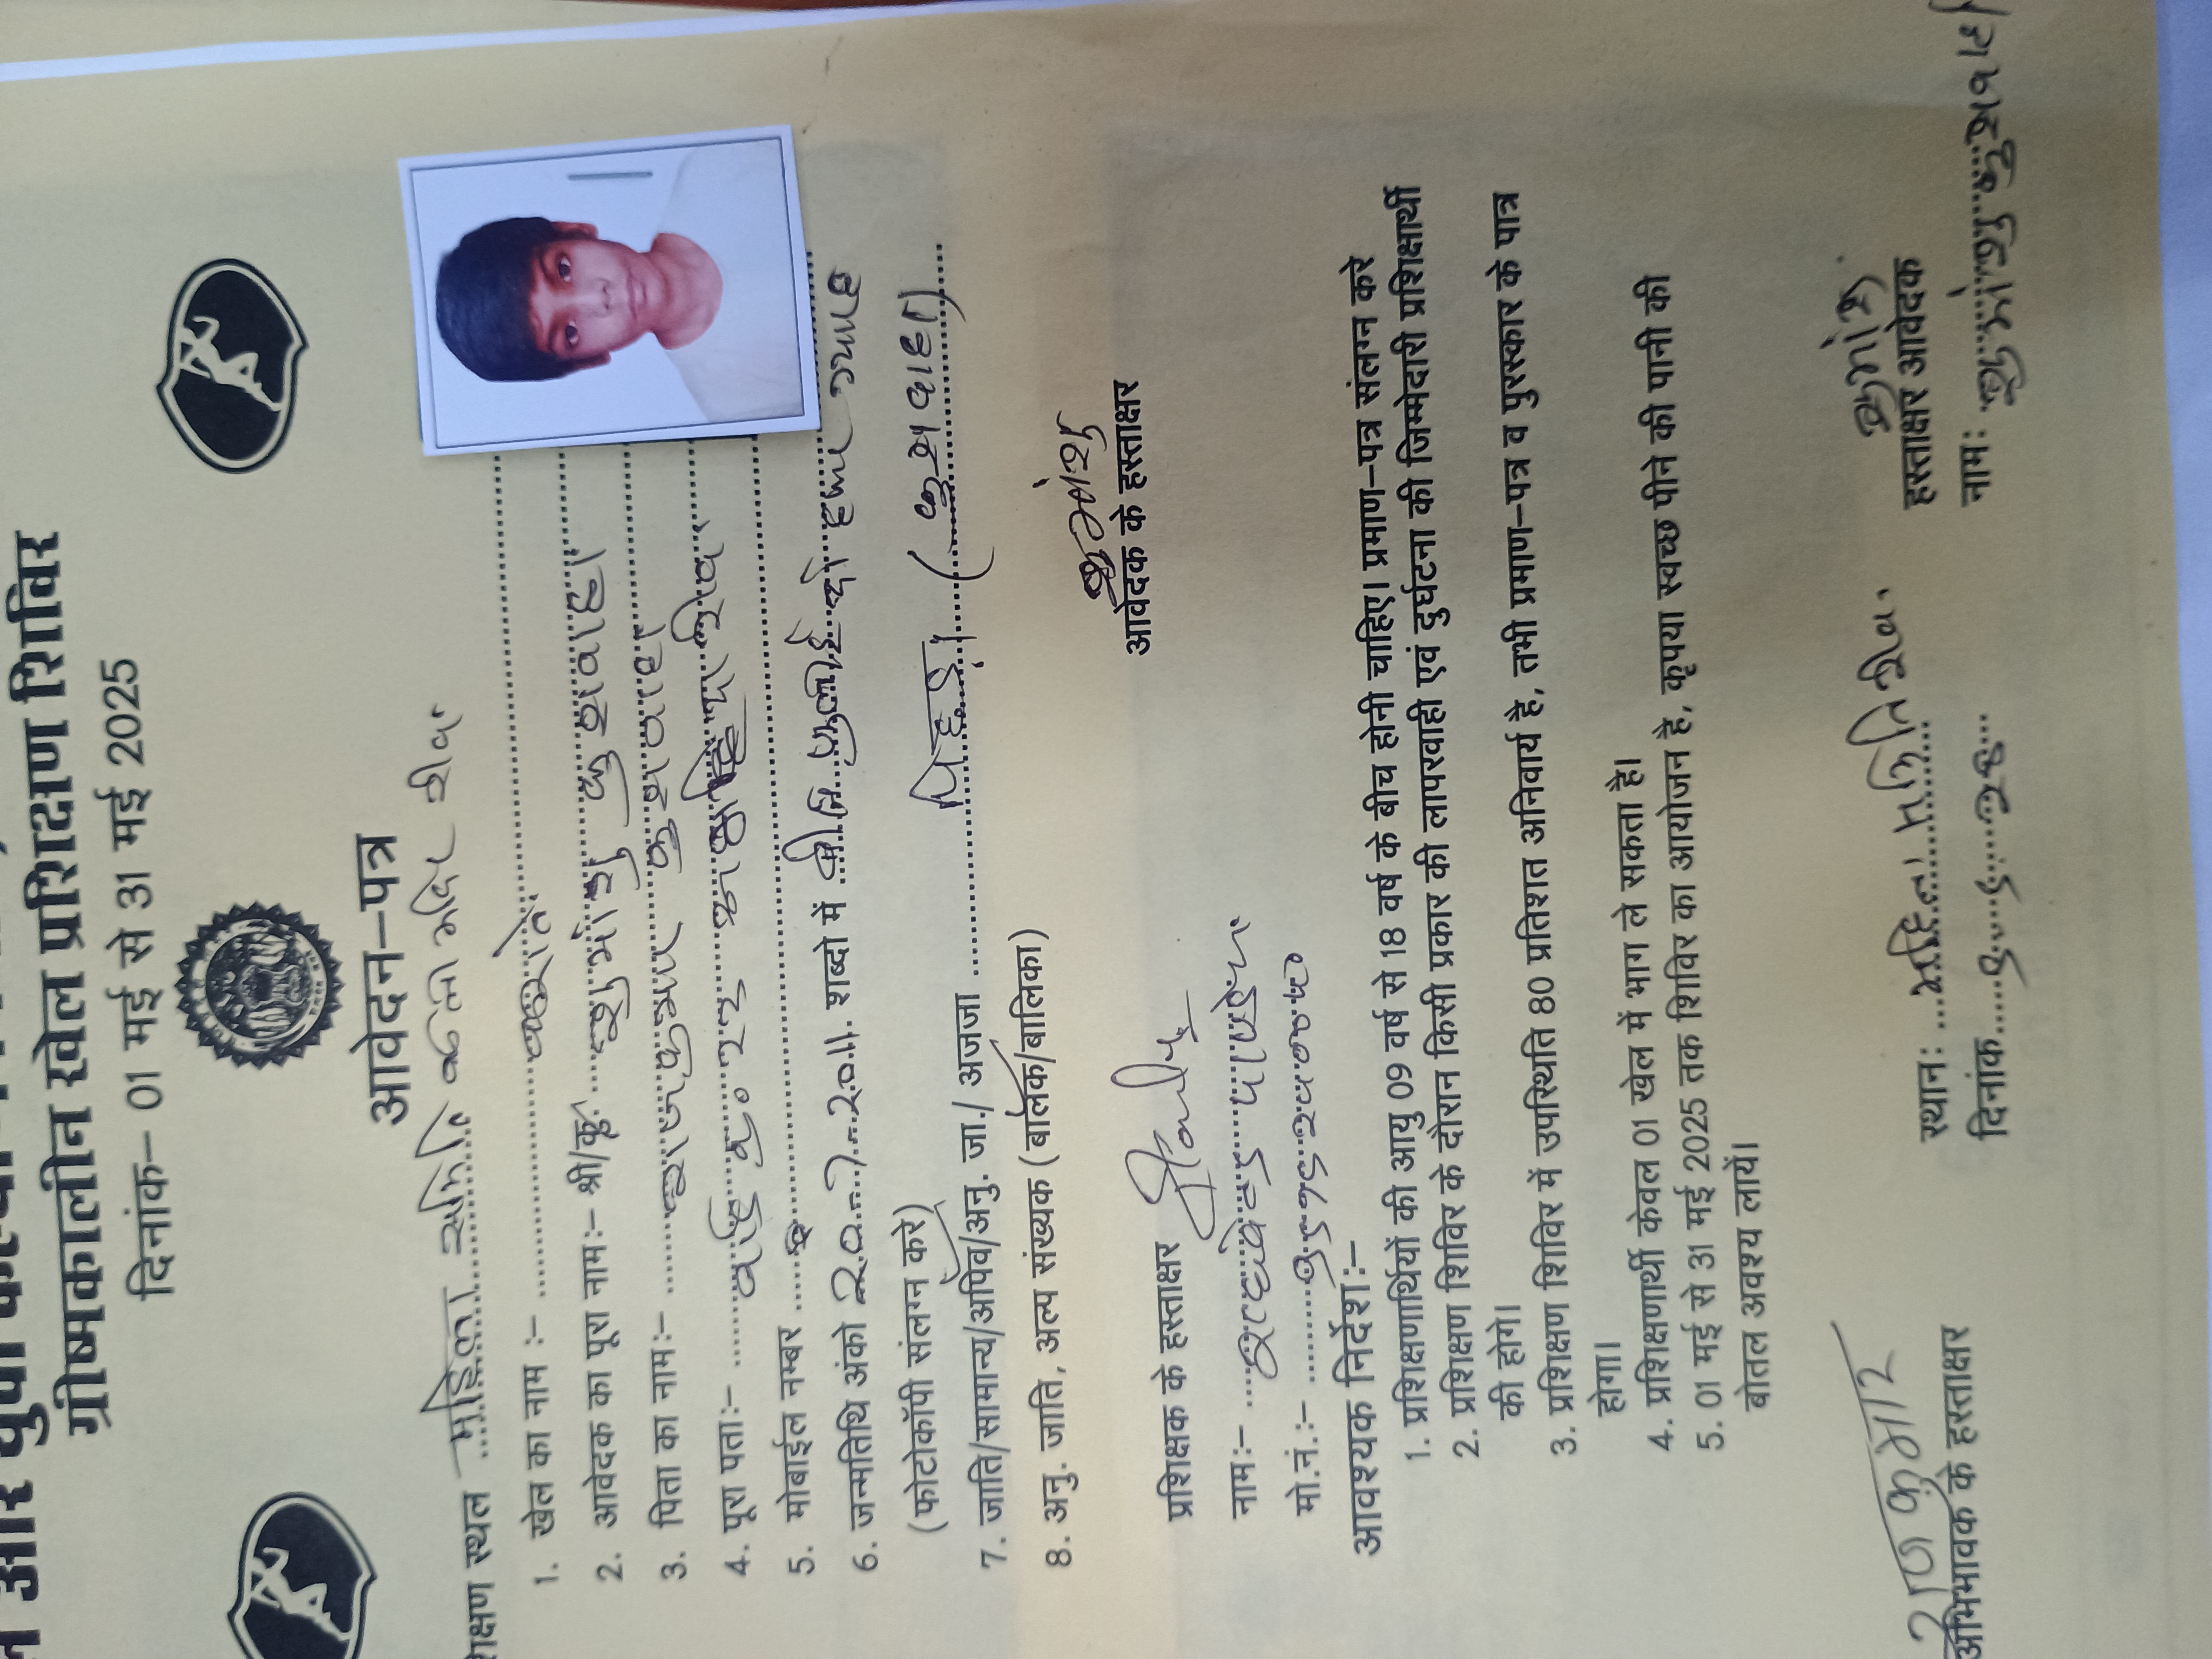 ग्रीष्मकालीन खेल प्रशिक्षण शिविर
दिनांक– 01 मई से 31 मई 2025
आवेदन–पत्र
स्थल महिला समिति कला मंदिर रीवा
1. खेल का नाम :– कराते
2. आवेदक का पूरा नाम:– श्री/कु. शुभांशु कुशवाहा
3. पिता का नाम:– राजकुमार कुशवाहा
4. पूरा पता:– वार्ड क्र. रीवा
5. मोबाईल नम्बर
6. जन्मतिथि अंको 20-7-2011 शब्दो में बीस जुलाई दो हजार ग्यारह
(फोटोकॉपी संलग्न करे)
7. जाति/सामान्य/अपिव/अनु. जा./ अजजा पिछड़ा (कुशवाहा)
8. अनु. जाति, अल्प संख्यक (बालक/बालिका)
आवेदक के हस्ताक्षर
प्रशिक्षक के हस्ताक्षर
नामः– पाण्डेय
मो.नं.:–
आवश्यक निर्देश:–
1. प्रशिक्षणार्थियों की आयु 09 वर्ष से 18 वर्ष के बीच होनी चाहिए। प्रमाण–पत्र संलग्न करे
2. प्रशिक्षण शिविर के दौरान किसी प्रकार की लापरवाही एवं दुर्घटना की जिम्मेदारी प्रशिक्षार्थी
की होगी।
3. प्रशिक्षण शिविर में उपस्थिति 80 प्रतिशत अनिवार्य है, तभी प्रमाण–पत्र व पुरस्कार के पात्र
होगा।
4. प्रशिक्षणार्थी केवल 01 खेल में भाग ले सकता है।
5. 01 मई से 31 मई 2025 तक शिविर का आयोजन है, कृपया स्वच्छ पीने की पानी की
बोतल अवश्य लायें।
राजकुमार
अभिभावक के हस्ताक्षर
स्थानः
दिनांक
हस्ताक्षर आवेदक
नामः शुभांशु कुशवाहा